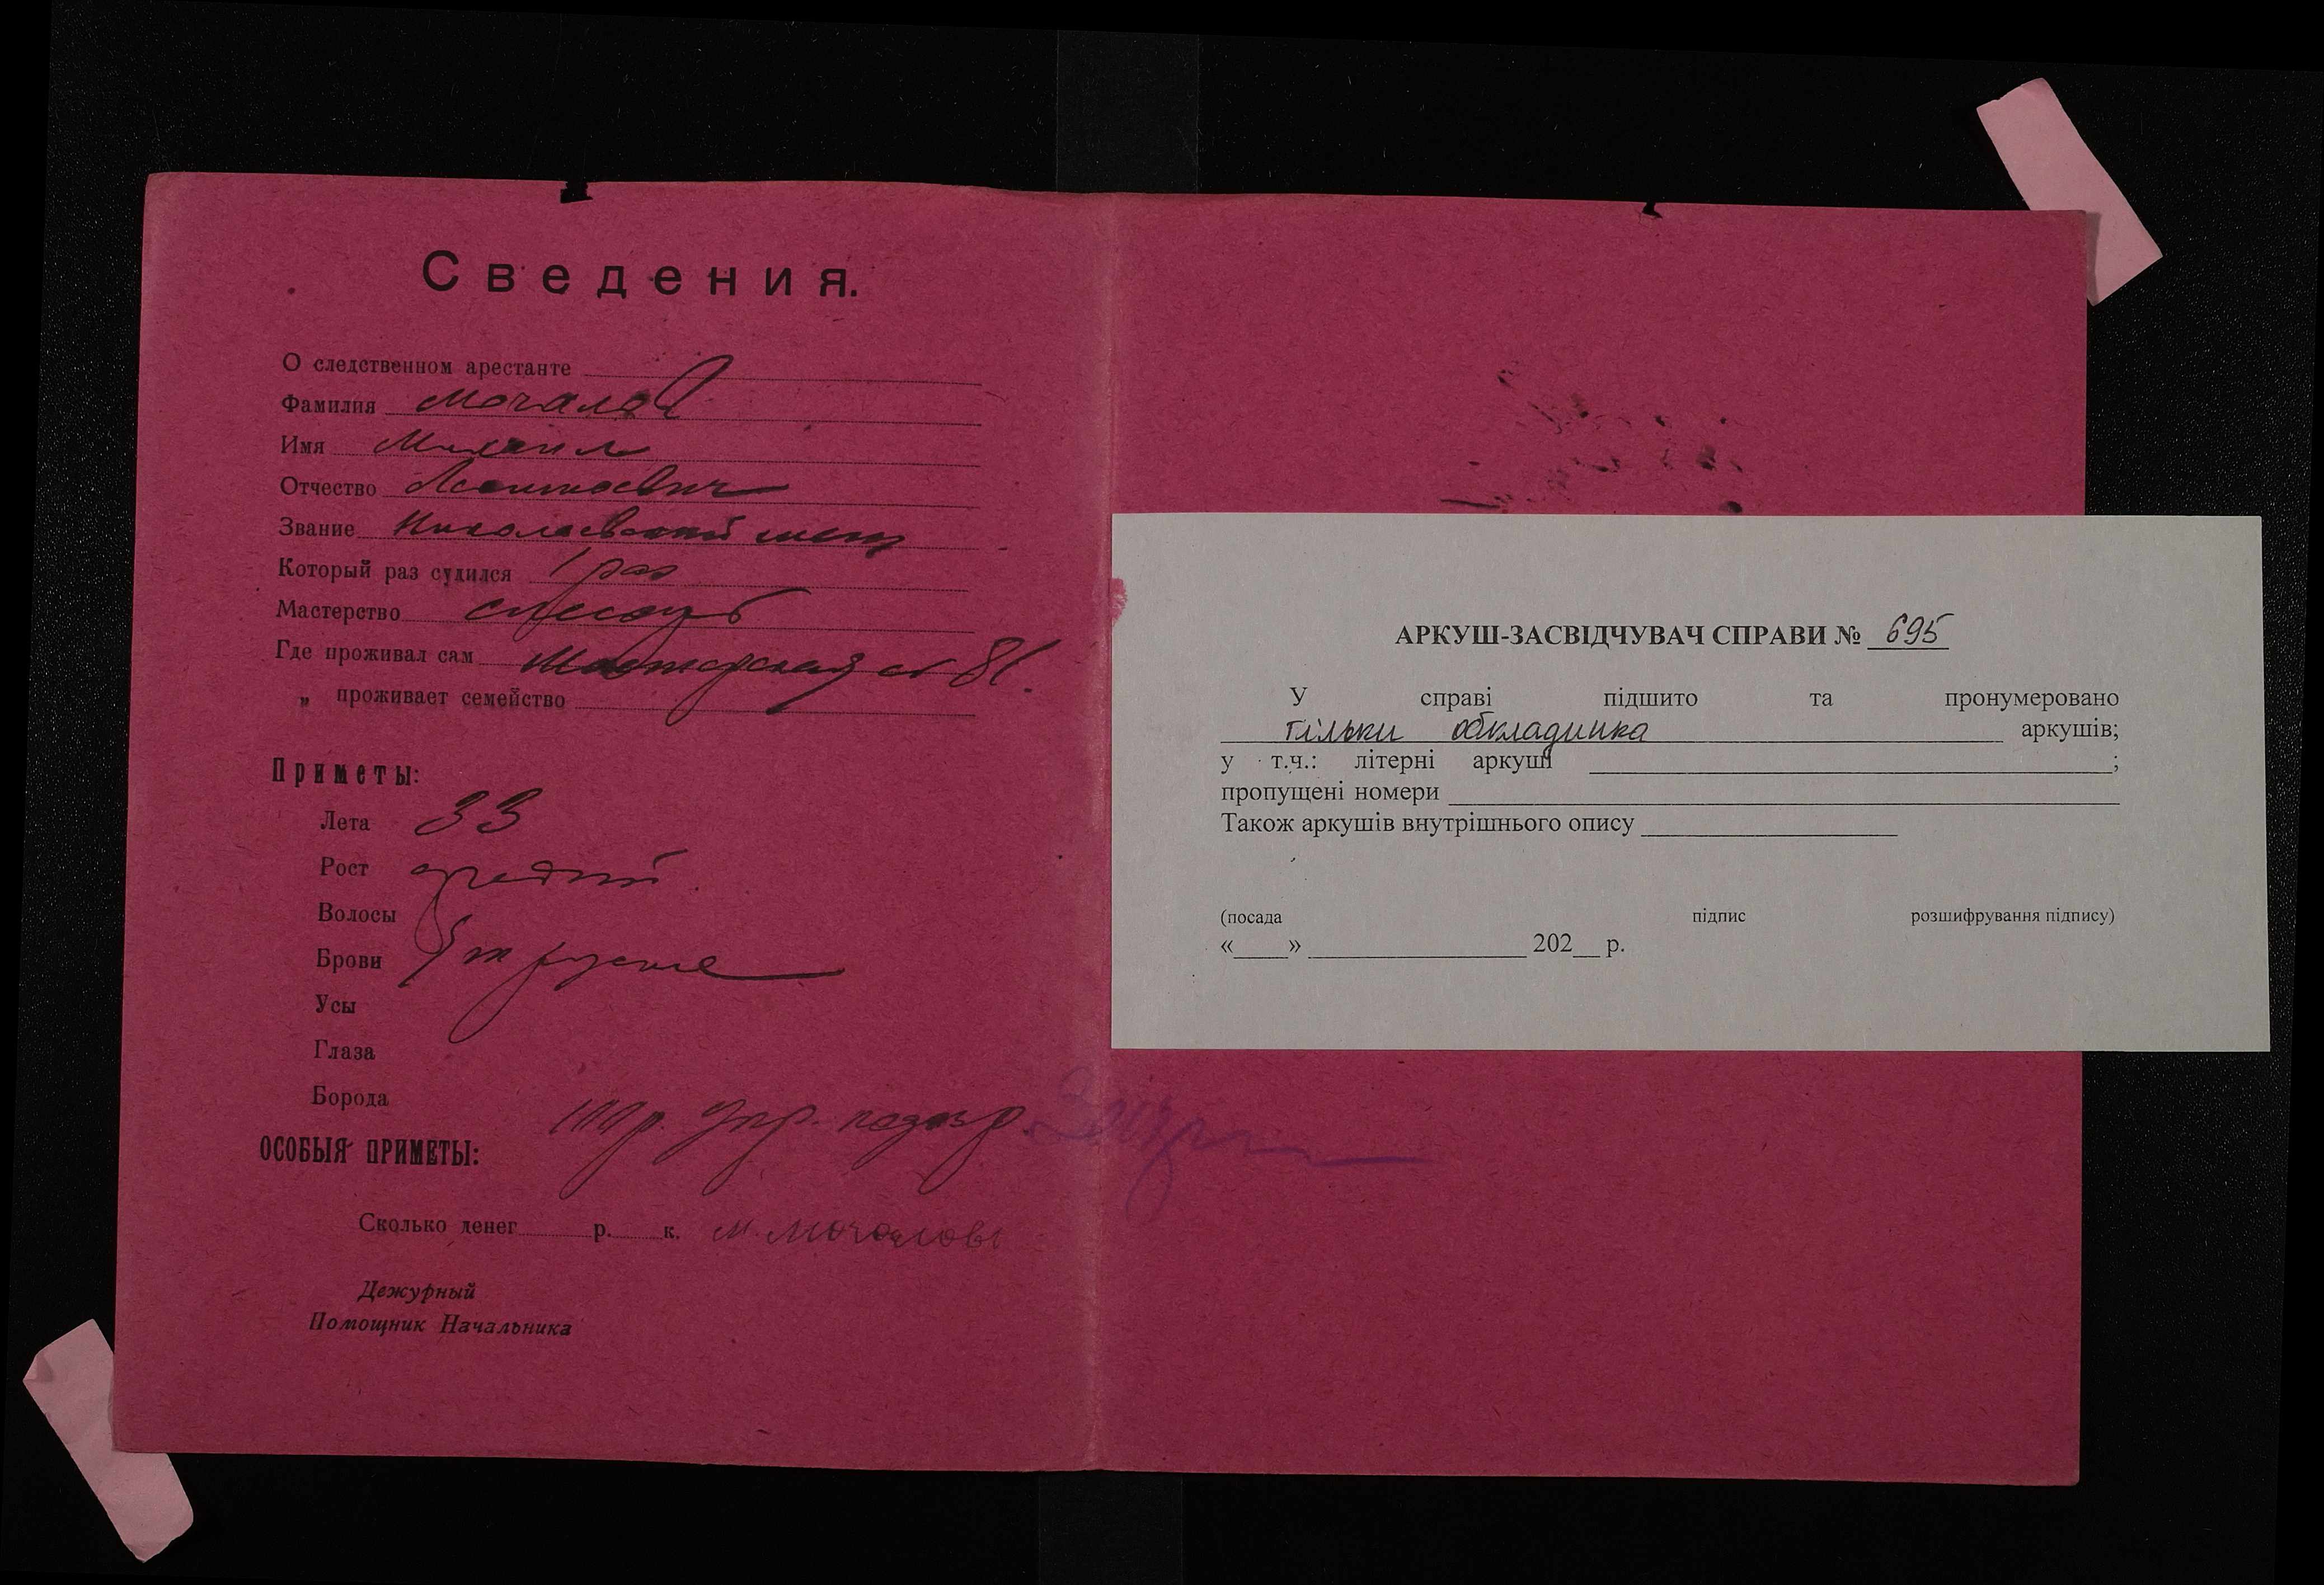 Сведения.
О следственном арестанте
Фамилия Мочалов
Имя Михаил
Отчество
Звание Николаевский мещ
Который раз судился 1 раз
Мастерство слесарь
Где проживал сам Мастерская 81.
„ проживает семейство
Приметы:
Лета 33
Рост средний.
Волосы
Брови русые
Усы
Глаза
Борода
ОСОБЫЯ ПРИМЕТЫ:
Сколько денег р. к. М. Мочаловъ
Дежурный
Помощник Начальника
АРКУШ-ЗАСВІДЧУВАЧ СПРАВИ № 695
У справі підшито та пронумеровано
тільки обкладинка аркушів;
у т.ч.: літерні аркуші ;
пропущені номери
Також аркушів внутрішнього опису
(посада підпис розшифрування підпису)
« » 202 р.